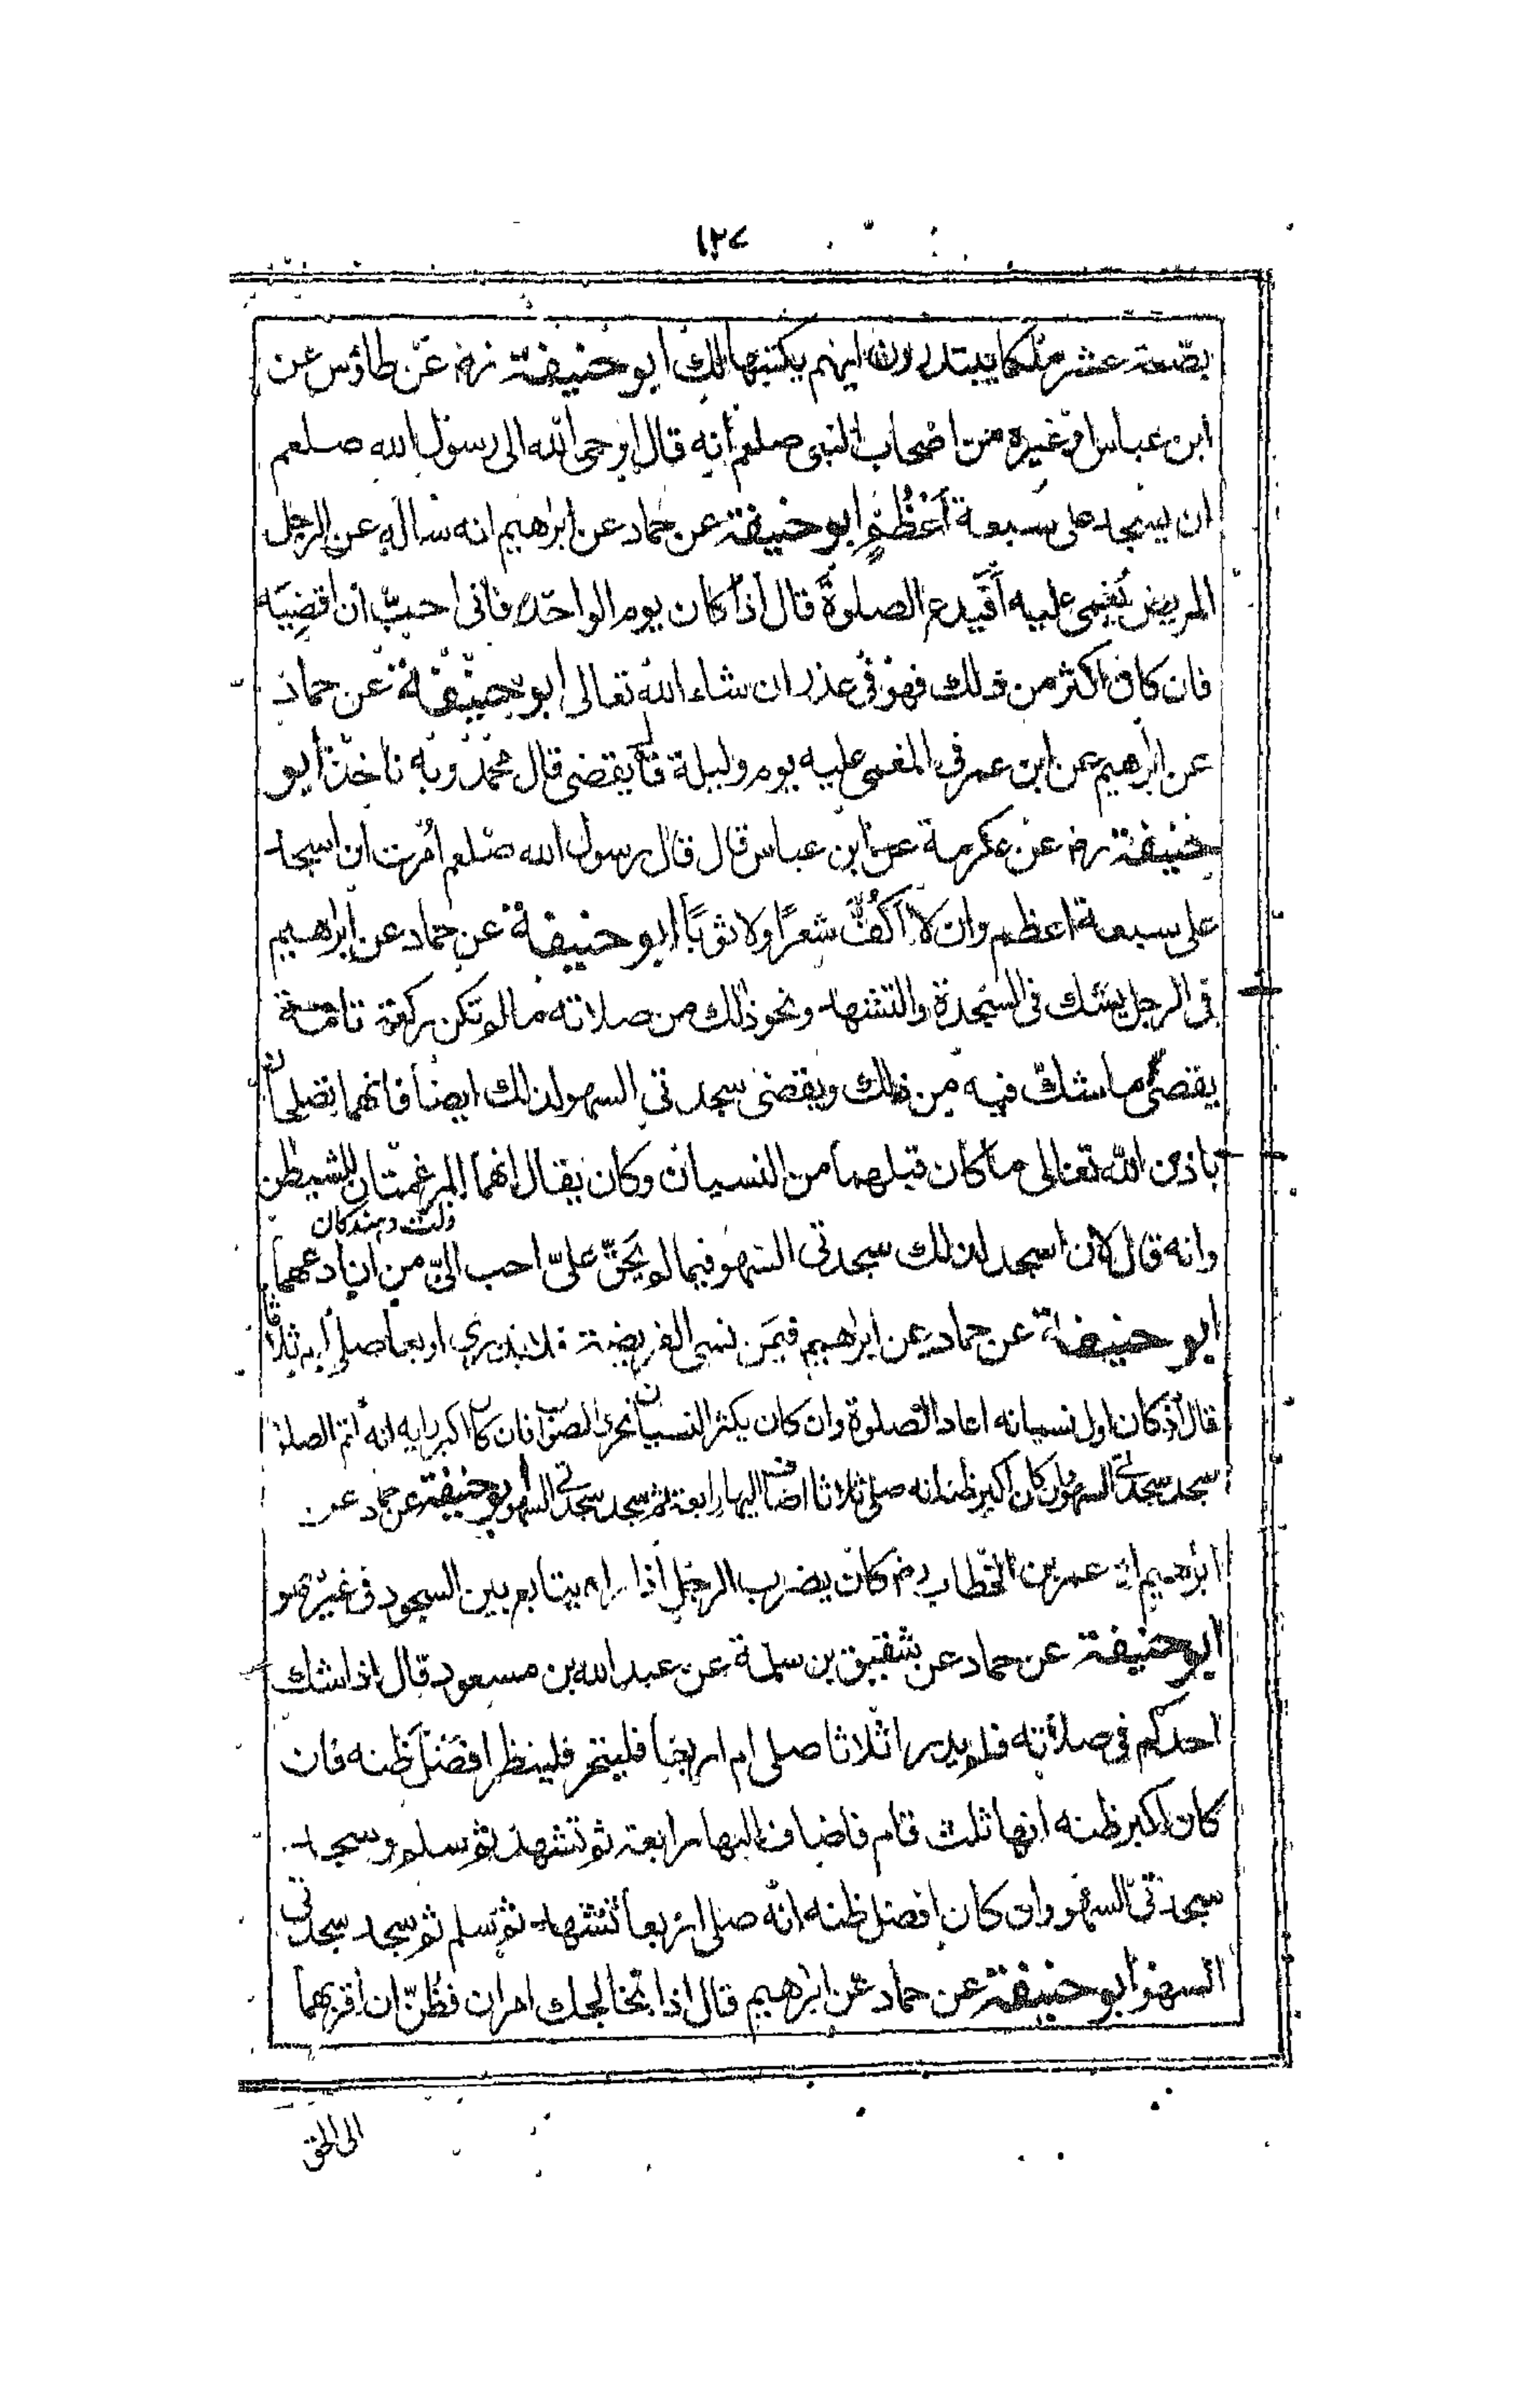 ١٢٧
بضعة عشر ملكا يبتدرون ايهم يكتبها لك ابو حنيفة رض عن طاؤس عن
ابن عباس او غيره من اصحاب النبى صلعم انه قال اوحى الله الى رسول الله صلعم
ان يسجد على سبعة اَعْظُمٍ ابو حنيفة عن حماد عن ابراهيم انه ساله عن الرجل
المريض يُغمى عليه اَفَيَدع الصلوةَ قال اذا كان يوم الواحد فانى احبّ ان اقضِيَه
فان كان اكثر من ذلك فهو فى عذر ان شاء الله تعالى ابو حنيفة عن حماد
عن ابراهيم عن ابن عمر فى المغمى عليه يوم وليلة قال يقضى قال محمد وبه ناخذ ابو
حنيفة رض عن عكرمة عن ابن عباس قال قال رسول الله صلعم اُمرت ان اسجد
على سبعة اعظم وان لا اَكُفَّ شعرًا ولا ثوبًا ابو حنيفة عن حماد عن ابراهيم
فى الرجل يشك فى السجدة والتشهد ونحو ذلك من صلاته ما لم تكن ركعة تامة
يقضى ما شك فيه من ذلك ويقضى سجدتى السهو لذلك ايضا فانهما تصلحان
باذن الله تعالى ما كان قبلهما من النسيان وكان يقال انهما المرغمتان للشيطن
ذلت دهندكان
وانه قال لان اسجد لذلك سجدتى السهو فيما لم يَحقّ علىّ احب الىّ من ان ادعهما
ابو حنيفة عن حماد عن ابراهيم فيمَن نسى الفريضة فلا يدرى اربعا صلى ام ثلاثا
قال اذ كان اول نسيانه اعاد الصلوة وان كان يكثر النسيان تحرى الصواب فان كان اكبر رايه انه اتم الصلوة
سجد سجدتى السهو وان كان اكبر ظنه انه صلى ثلاثا اضاف اليها رابعة ثم سجد سجدتى السهو ابو حنيفة عن حماد عن
ابراهيم ان عمر بن الخطاب رض كان يضرب الرجل اذا راه يتابع بين السجود فى غير سهو
ابو حنيفة عن حماد عن شقيق بن سلمة عن عبد الله بن مسعود قال اذا شك
احدكم فى صلاته فلم يدر اثلاثا صلى ام اربعا فليتحر فلينظر افضل ظنه فان
كان اكبر ظنه انها ثلث قام فاضاف اليها رابعة ثم تشهد ثم سلم وسجد
سجدتى السهو وان كان افضل ظنه انه صلى اربعا تشهد ثم سلم ثم سجد سجدتى
السهو ابو حنيفة عن حماد عن ابراهيم قال اذا تخالجك امران فظُنّ ان اقربهما
الى الحق